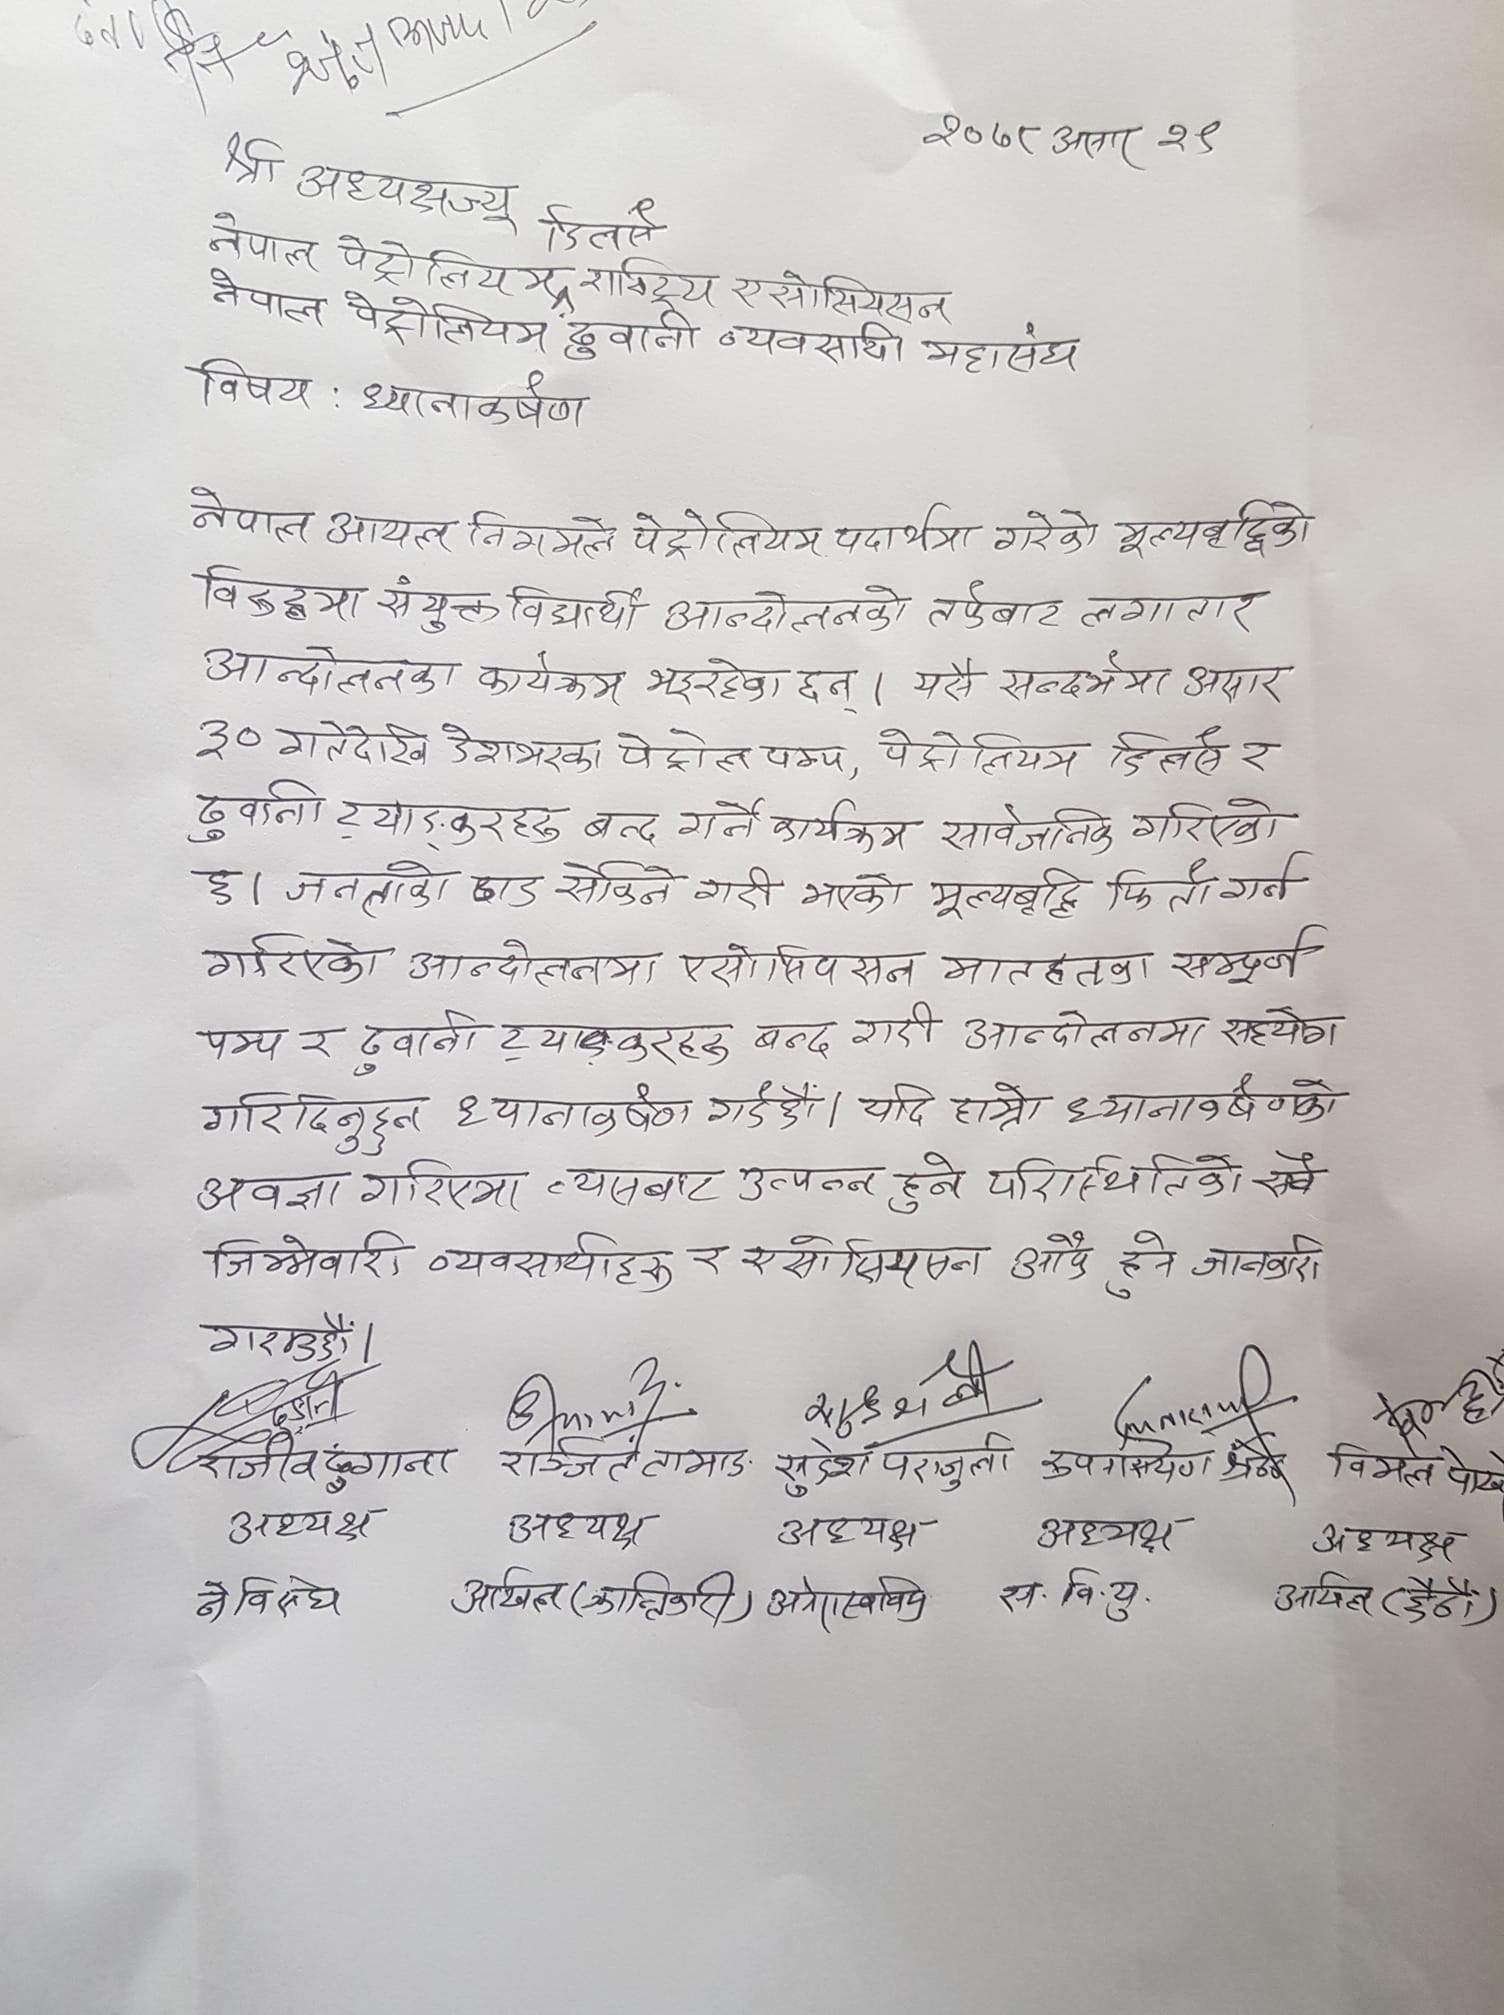 २०७८ असार २९
श्री अध्यक्षज्यू
डिलर्स
नेपाल पेट्रोलियम राष्ट्रिय एसोसियसन
नेपाल पेट्रोलियम ढुवानी व्यवसायी महासंघ
विषय : ध्यानाकर्षण
नेपाल आयल निगमले पेट्रोलियम पदार्थमा गरेको मूल्यबृद्धिको
विरुद्धमा संयुक्त विद्यार्थी आन्दोलनको तर्फबाट लगातार
आन्दोलनका कार्यक्रम भइरहेका छन् । यसै सन्दर्भमा असार
३० गतेदेखि देशभरका पेट्रोल पम्प, पेट्रोलियम डिलर्स र
ढुवानी ट्याङ्कुरहरु बन्द गर्ने कार्यक्रम सार्वजनिक गरिएको
छ । जनताको ढाड सेकिने गरी भएको मूल्यबृद्धि फिर्ता गर्न
गरिएको आन्दोलनमा एसोसियसन मातहतका सम्पूर्ण
पम्प र ढुवानी ट्याङ्कुरहरु बन्द गरी आन्दोलनमा सहयोग
गरिदिनुहुन ध्यानाकर्षण गर्दछौं । यदि हाम्रो ध्यानाकर्षणको
अवज्ञा गरिएमा त्यसबाट उत्पन्न हुने परिस्थितिको सबै
जिम्मेवारी व्यवसायीहरु र एसोसियसन आफै हुने जानकारी
गराउछौं ।
राजीव ढुंगाना रञ्जित तामाङ सुदेश पराजुली विमल पोख
अध्यक्ष अध्यक्ष अध्यक्ष अध्यक्ष अध्यक्ष
नेविसंघ अखिल (क्रान्तिकारी) स. वि. यु. अखिल (छैठौं)